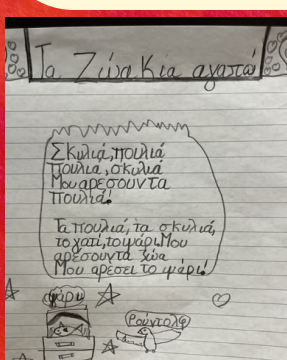 Τα Ζώα Κια αγαπώ
Σκυλιά, πουλιά
Πουλια, σκυλιά
Μου αρεσουν τα
πουλιά!
Τα πουλιά, τα σκυλιά,
το γατί, το ψάρι. Μου
αρέσουντα ζώα
Μου αρέσει το ψάρι!
ψάρι
Ρούντολφ